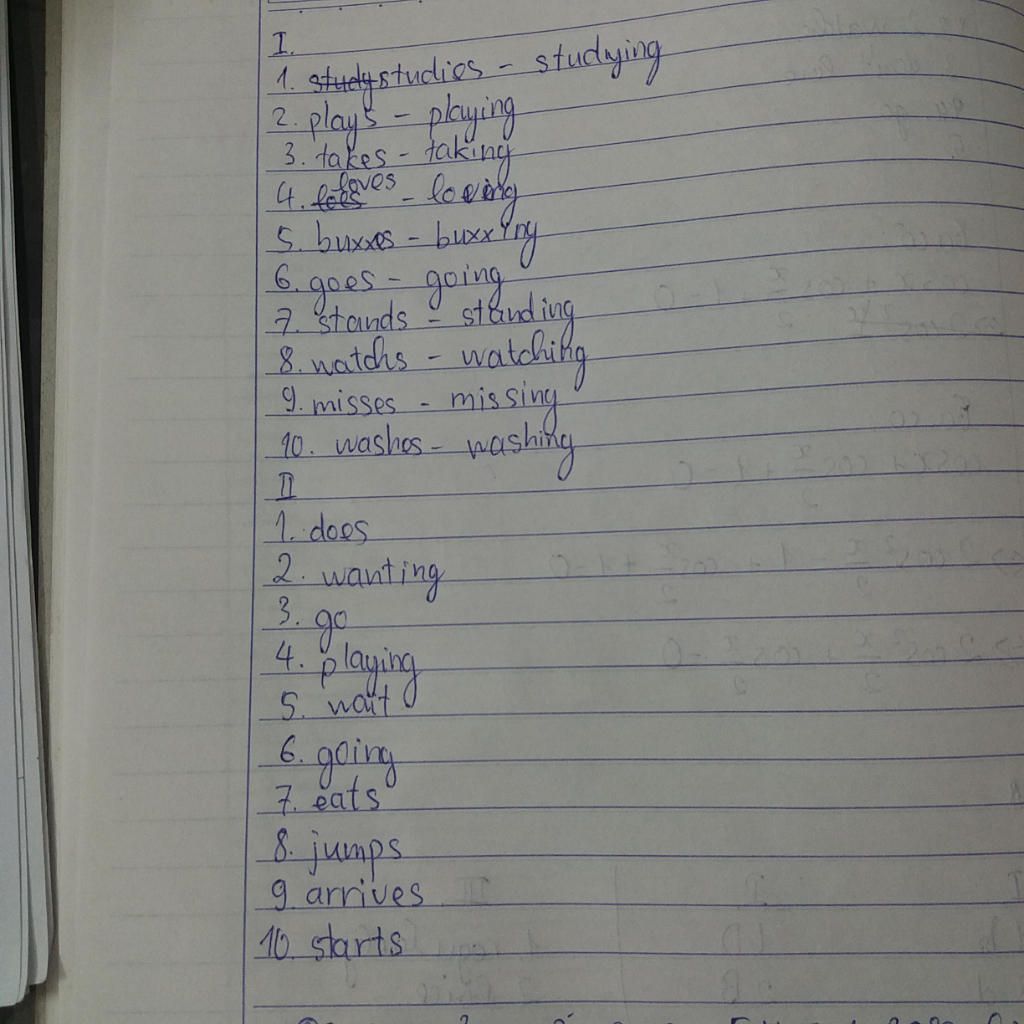 I.
1. study studies - studying
2. plays - playing
3. takes - taking
4. loes loves - loving
5. buxxes - buxxing
6. goes - going
7. stands - standing
8. watchs - watching
9. misses - missing
10. washes - washing
II
1. does
2. wanting
3. go
4. playing
5. wait
6. going
7. eats
8. jumps
9. arrives
10. starts